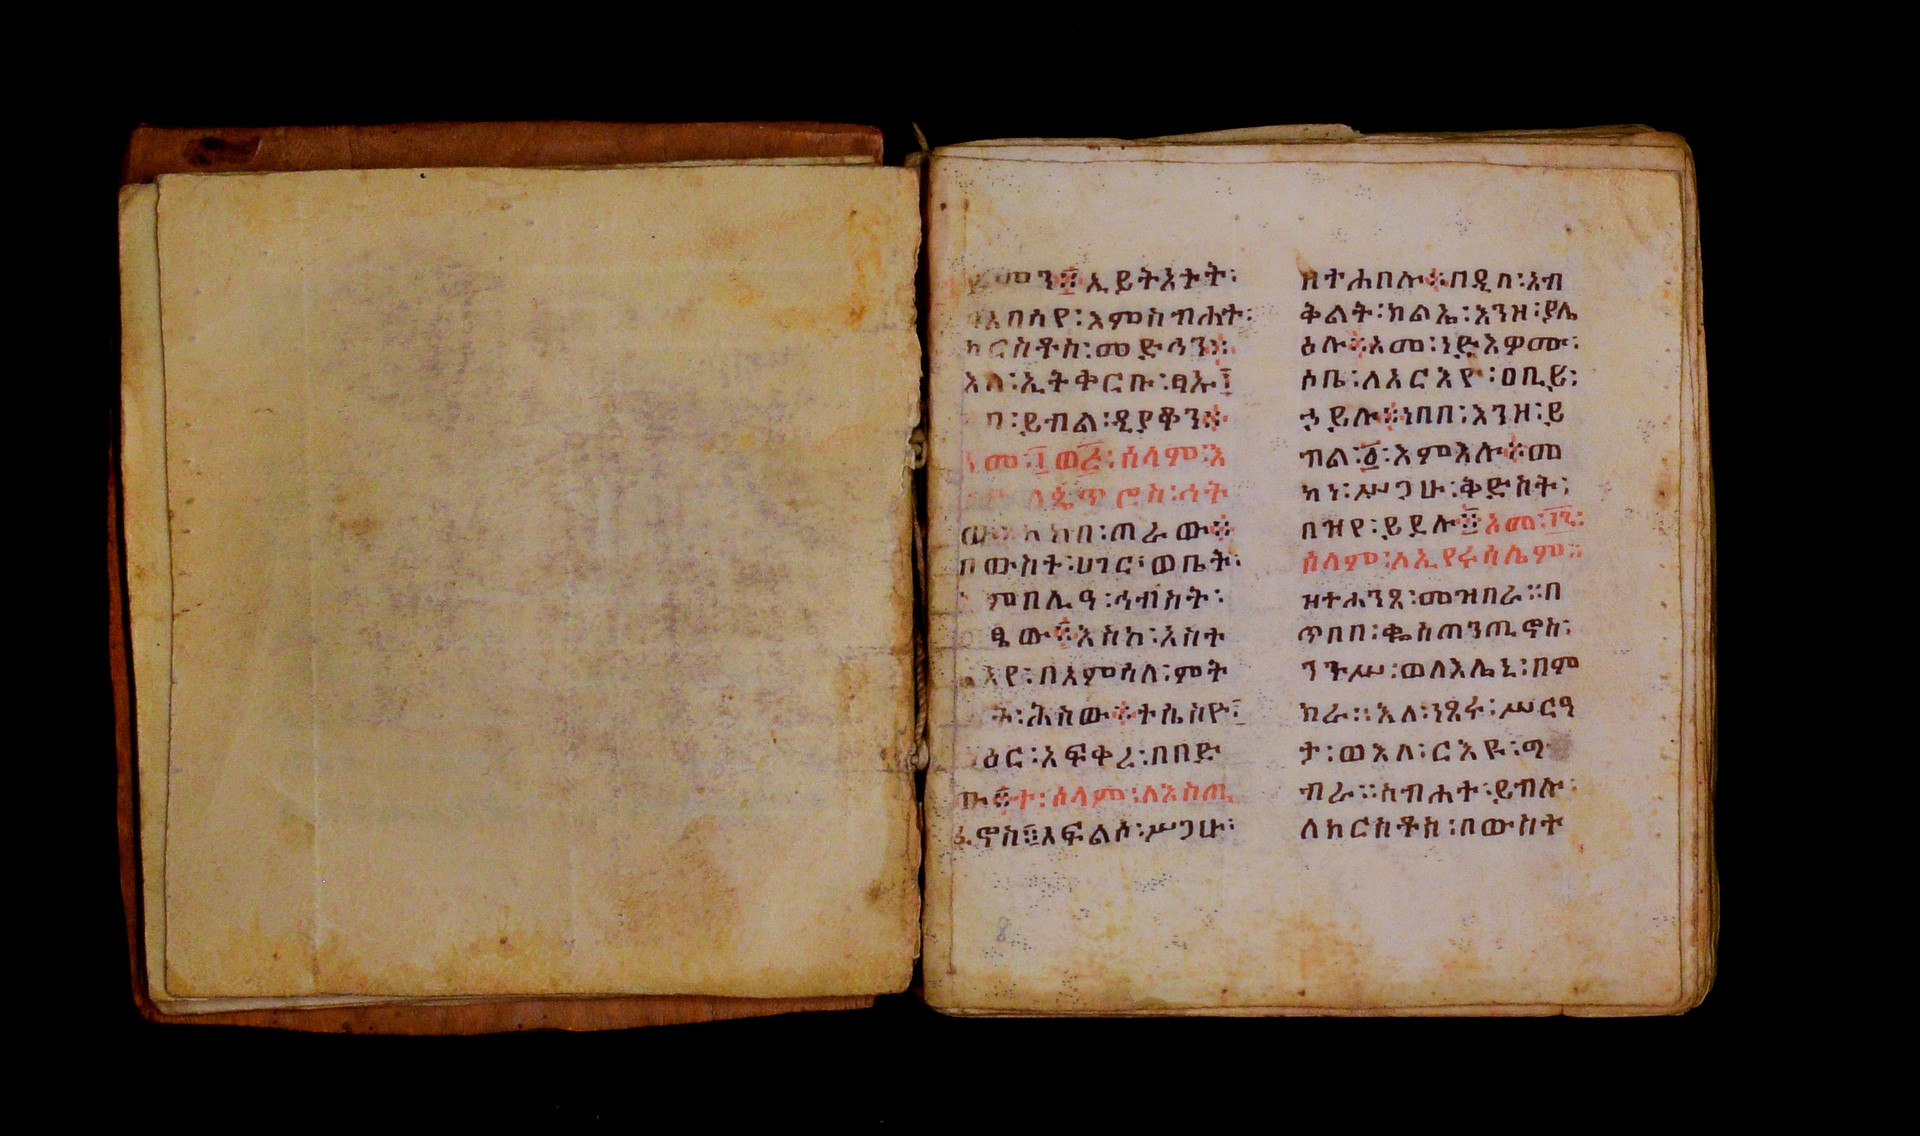 ኢይትአትት፡
እምስብሐት፡
ክርስቶስ፡መድኅን፡
ኢትቅርቡ፡ፃኡ፤
ይብል፡ዲያቆን።
፲ወ፯፡ሰላም፡እ
ለጴጥሮስ፡ኅት
ከከበ፡ጠራው።
በውስተ፡ሀገር፡ወቤት፡
ኅብስት፡
እስከ፡አስተ
በአምሳለ፡ምት
ሕስው።ተሴስዮ፤
አፍቀረ፡በበድ
ሰላም፡ለአስጢ
ፋኖስ፨አፍልሶ፡ሥጋሁ፡
ዘተሐበሉ።በዲበ፡እብ
ቅልት፡ክልኤ፡እንዘ፡ያሌ
ዕሉ።አመ፡ነድእዎሙ፡
ሶቤ፡ለአርአዮ፡ዐቢይ፡
ኃይሉ።ነበበ፡እንዘ፡ይ
ብል፡፩፡እምእሉ።መ
ካነ፡ሥጋሁ፡ቅድስት፡
በዝየ፡ይደሉ፨አመ፡፲፯፡
ሰላም፡ለኢየሩሳሌም።
ዝተሐንጸ፡መዝበራ።በ
ጥበበ፡ቈስጠንጢኖስ፡
ንጉሥ፡ወለእሌኒ፡በም
ክራ።እለ፡ነጸሩ፡ሥርዓ
ታ፡ወእለ፡ርእዩ፡ግ
ብራ።ስብሐተ፡ይብሉ፡
ለክርስቶስ፡በውስተ